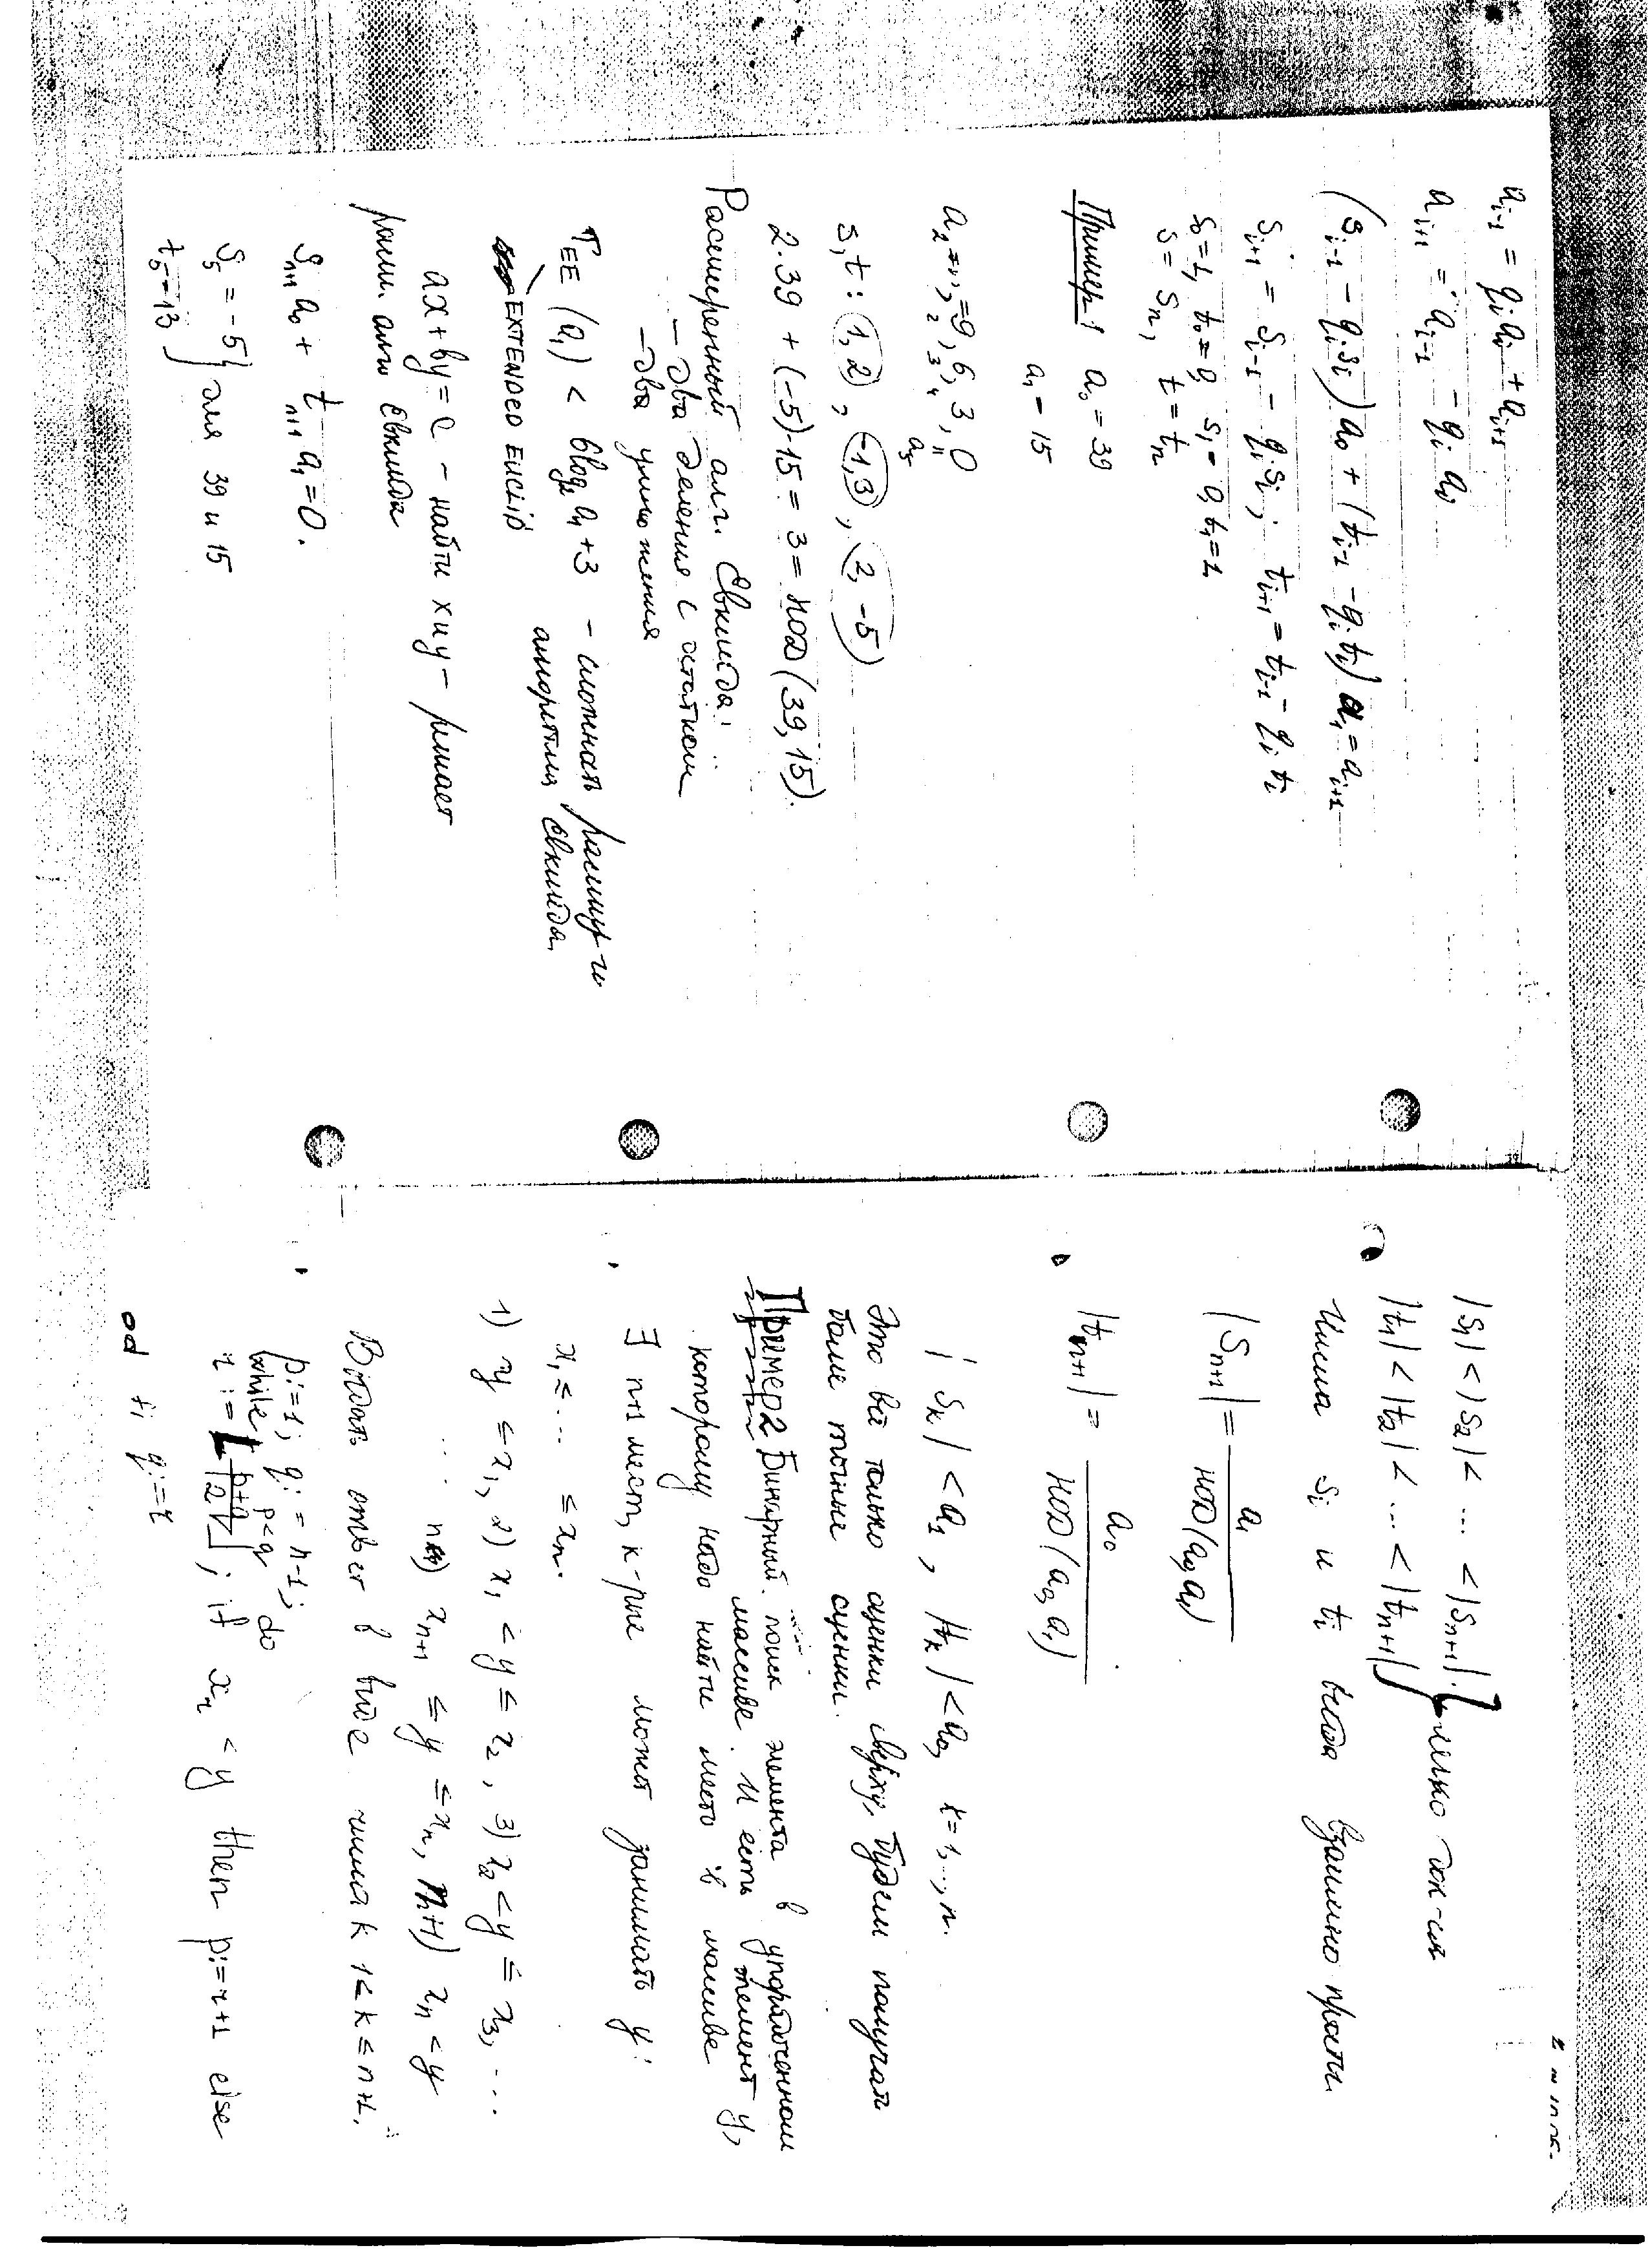 a_{i-1} = q_i a_i + a_{i+1}
a_{i+1} = a_{i-1} - q_i a_i
(s_{i-1} - q_i s_i) a_0 + (t_{i-1} - q_i t_i) a_1 = a_{i+1}
s_{i+1} = s_{i-1} - q_i s_i ; t_{i+1} = t_{i-1} - q_i t_i
s_0 = 1, t_0 = 0 s_1 = 0, t_1 = 1
s = s_n, t = t_n
Пример 1 a_0 = 39
a_1 = 15
a_2 = 9, 6, 3, 0
s, t : (1, 2), (-1, 3), (2, -5)
2·39 + (-5)·15 = 3 = НОД (39, 15).
Расширенный алг. Евклида:
- два деления с остатком
- два умножения
T_{EE} (a_1) < 6log_2 a_1 + 3 - сложность расшир-го
EXTENDED EUCLID алгоритма Евклида
ax + by = c - найти x и y - решает
расш. алг. Евклида
s_{n+1} a_0 + t_{n+1} a_1 = 0.
s_5 = -5 } для 39 и 15
t_5 = 13
|s_1| < |s_2| < ... < |s_{n+1}|
|t_1| < |t_2| < ... < |t_{n+1}| } легко док-ся
Числа s_i и t_i всегда взаимно просты.
|s_{n+1}| = a_1 / НОД (a_0, a_1)
|t_{n+1}| = a_0 / НОД (a_0, a_1)
|s_k| < a_1, |t_k| < a_0, k = 1, ..., n.
Это всё только оценки сверху, будем получать
более точные оценки.
Пример 2 Бинарный поиск элемента в упорядоченном
массиве. И есть элемент y,
которому надо найти место в массиве
∃ n+1 мест, к-рые может занимать y:
x_1 ≤ ... ≤ x_n.
1) y ≤ x_1, 2) x_1 < y ≤ x_2, 3) x_2 < y ≤ x_3, ...
... n) x_{n+1} ≤ y ≤ x_n, n+1) x_n < y
Выдать ответ в виде числа k 1 ≤ k ≤ n+1.
p := 1; q := n-1;
while p < q do
r := ⌊(p+q)/2⌋; if x_r < y then p := r+1 else
od fi q := r